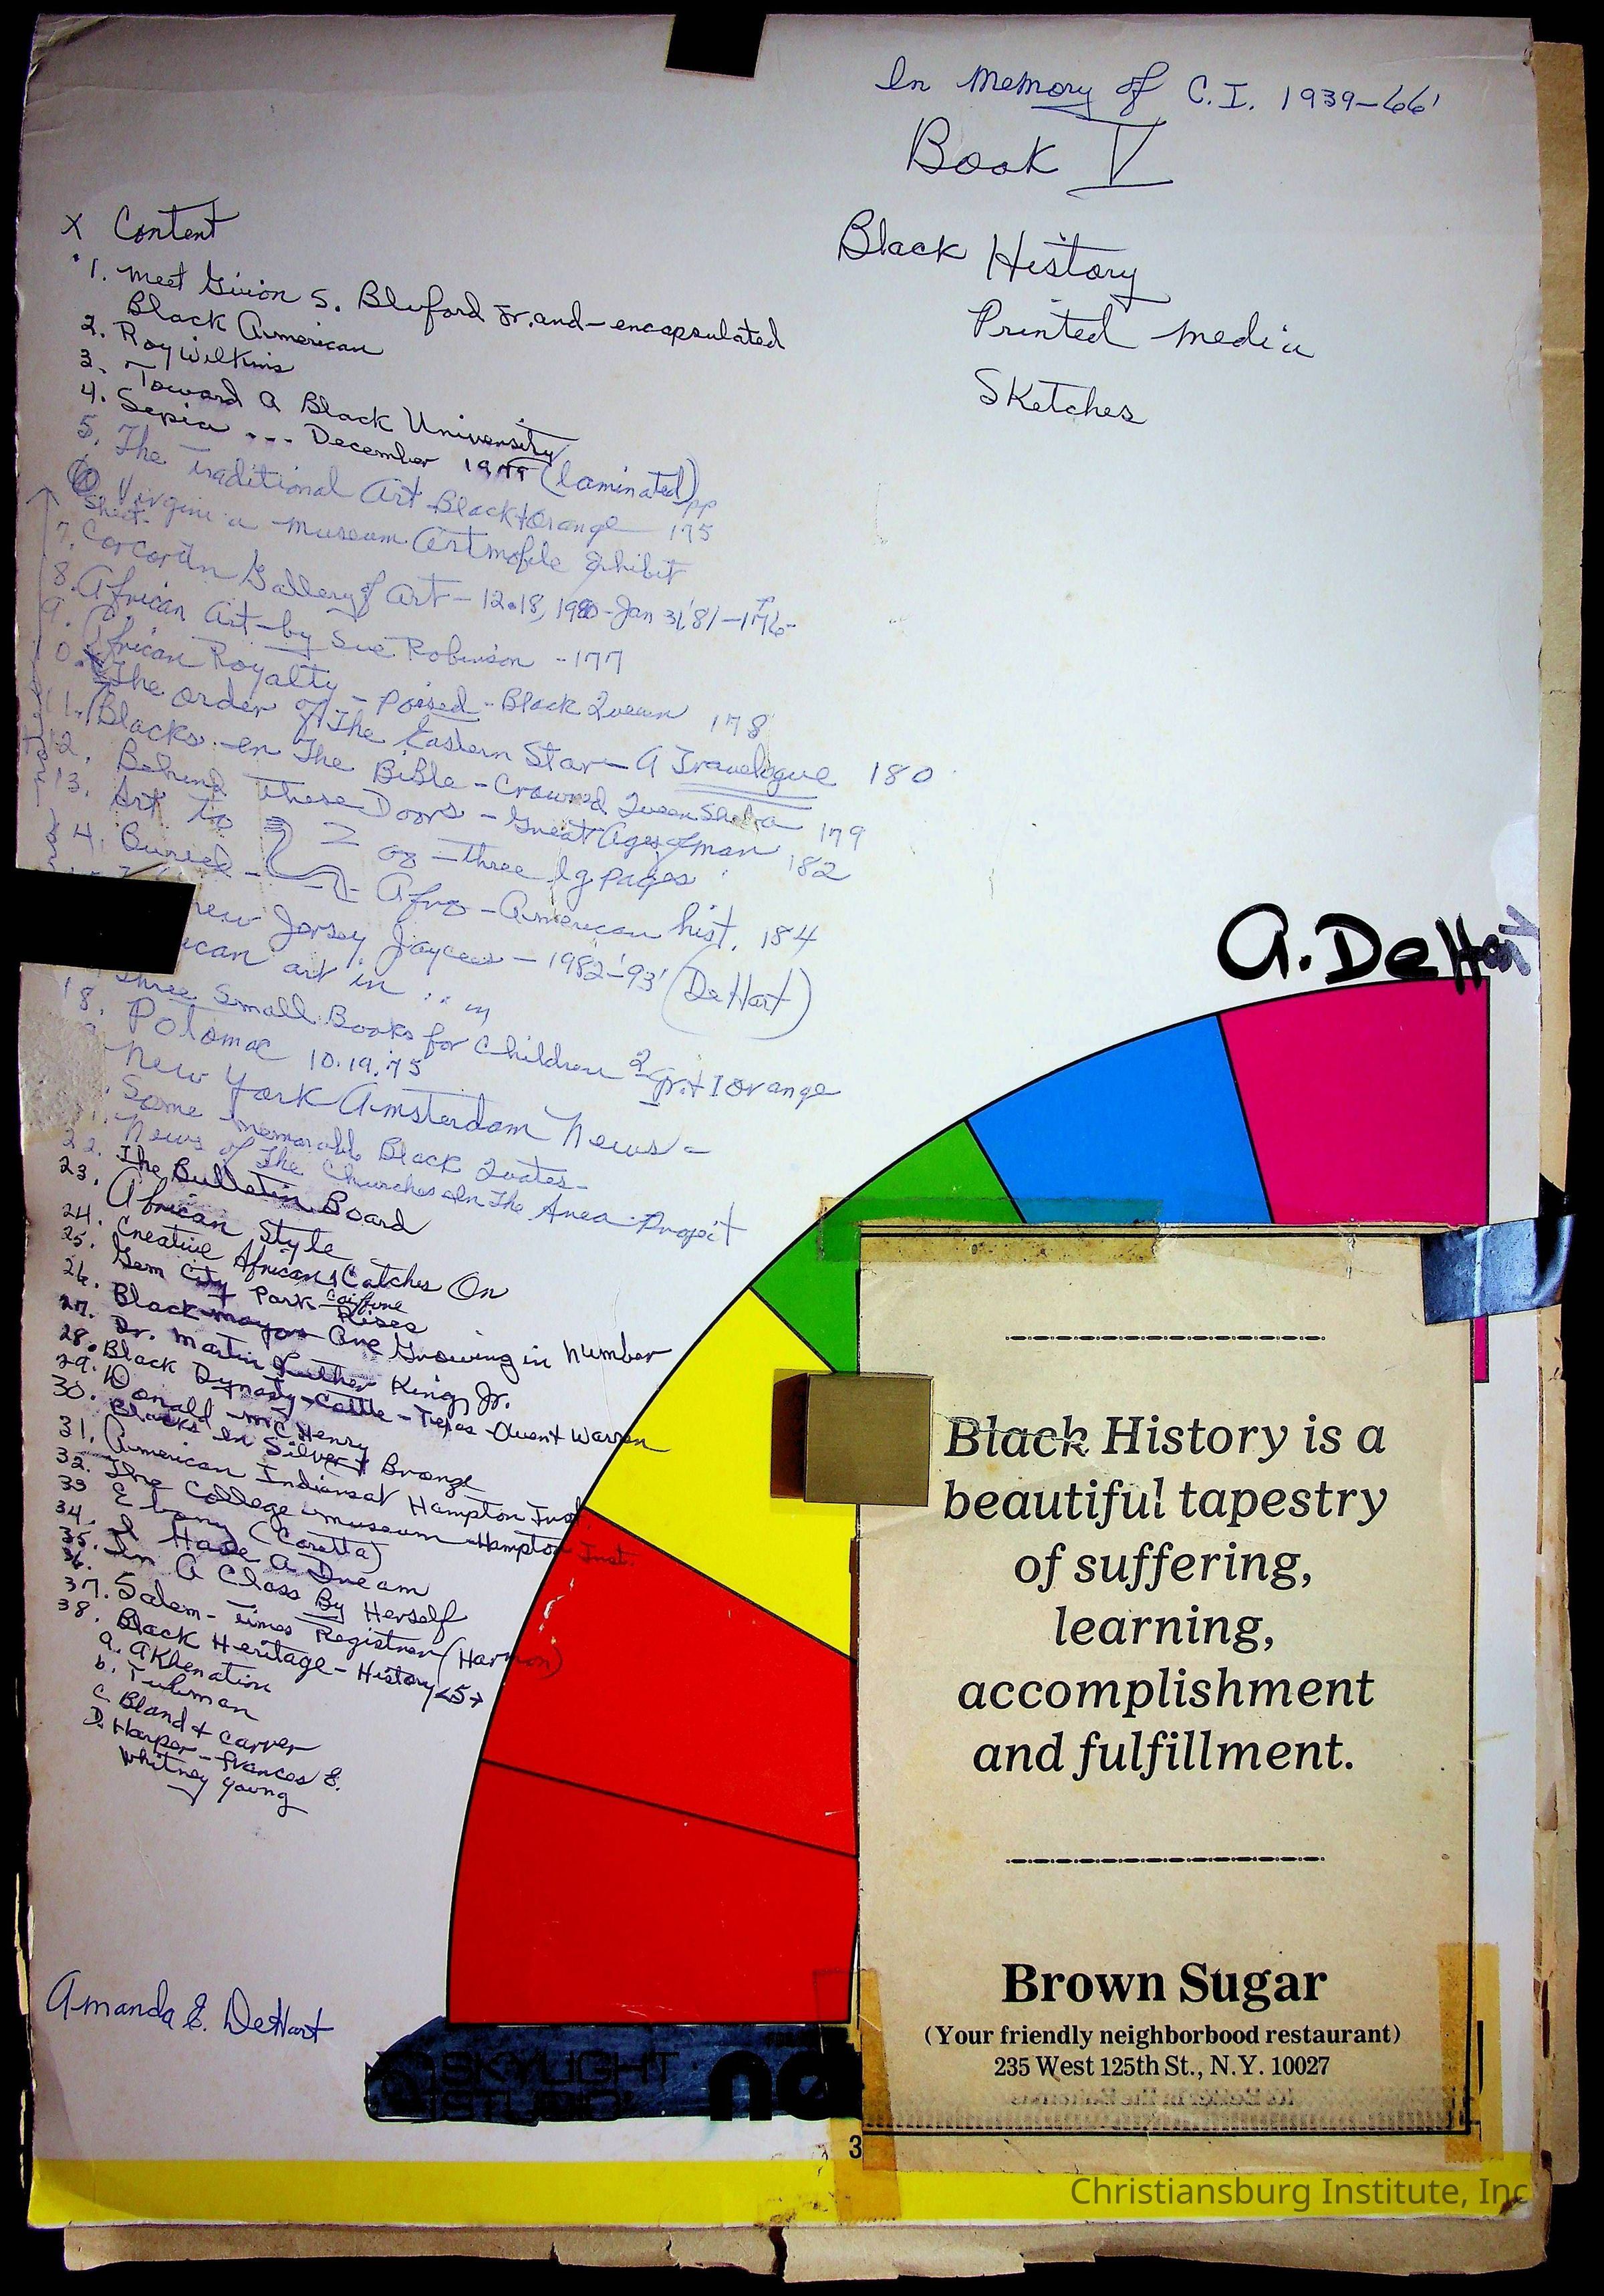 In Memory of C.I. 1939-66'
Book V
Black History
Printed media
Sketches
X Content
1. Meet Guion S. Bluford Jr. and-encapsulated
Black American
2. Roy Wilkins
3. Toward A Black University
4. Sepia ... December 1979 (laminated)
5. The Traditional Art Black+Orange pp 175
6 Virginia Museum Artmobile Exhibit
Sheet
7. Corcoran Gallery of Art - 12.18, 1980-Jan 31, '81 - 176-
8. African Art-by Sue Robinson - 177
9. African Royalty - Poised - Black Queen 178
0. The order of The Eastern Star - A Travelogue 180
11. Blacks in The Bible - Crowned Queen Sheba 179
12. Behind These Doors - Great Ages of man 182
13. Art to or - three lg pages
14. Buried - Afro-American hist. 184
new Jersey Jaycees - 1982-'93' (DeHart)
ican art in
Three Small Books for Children 2 gr.+1 orange
18. Potomac 10.19.75
New York Amsterdam News -
Some memorable Black Quotes-
News of The Churches In The Area Project
22. The Bulletin Board
23. African Style
24. Creative African Catches On
25. Gem City Park Rises
26. Black mayors Are Growing in Number
27. Dr. Martin Luther King, Jr.
28. Black Dynasty-Cattle-Texas
29. Donald McHenry
30. Blacks In Silver + Bronze
31. American Indians at Hampton Inst.
32. The College museum - Hampton Inst.
33 Ebony (Coretta)
34. I Have A Dream
35. In A Class By Herself
36.
37. Salem-Times Register (Harmon)
38. Black Heritage-History <5>
a. AKhenation
b. Tubman
c. Bland + Carver
D. Harper - Frances E.
Whitney Young
A. DeHart
Black History is a
beautiful tapestry
of suffering,
learning,
accomplishment
and fulfillment.
Brown Sugar
(Your friendly neighborbood restaurant)
235 West 125th St., N.Y. 10027
Amanda E. DeHart
SKYLIGHT
STUDIO
3
Christiansburg Institute, Inc